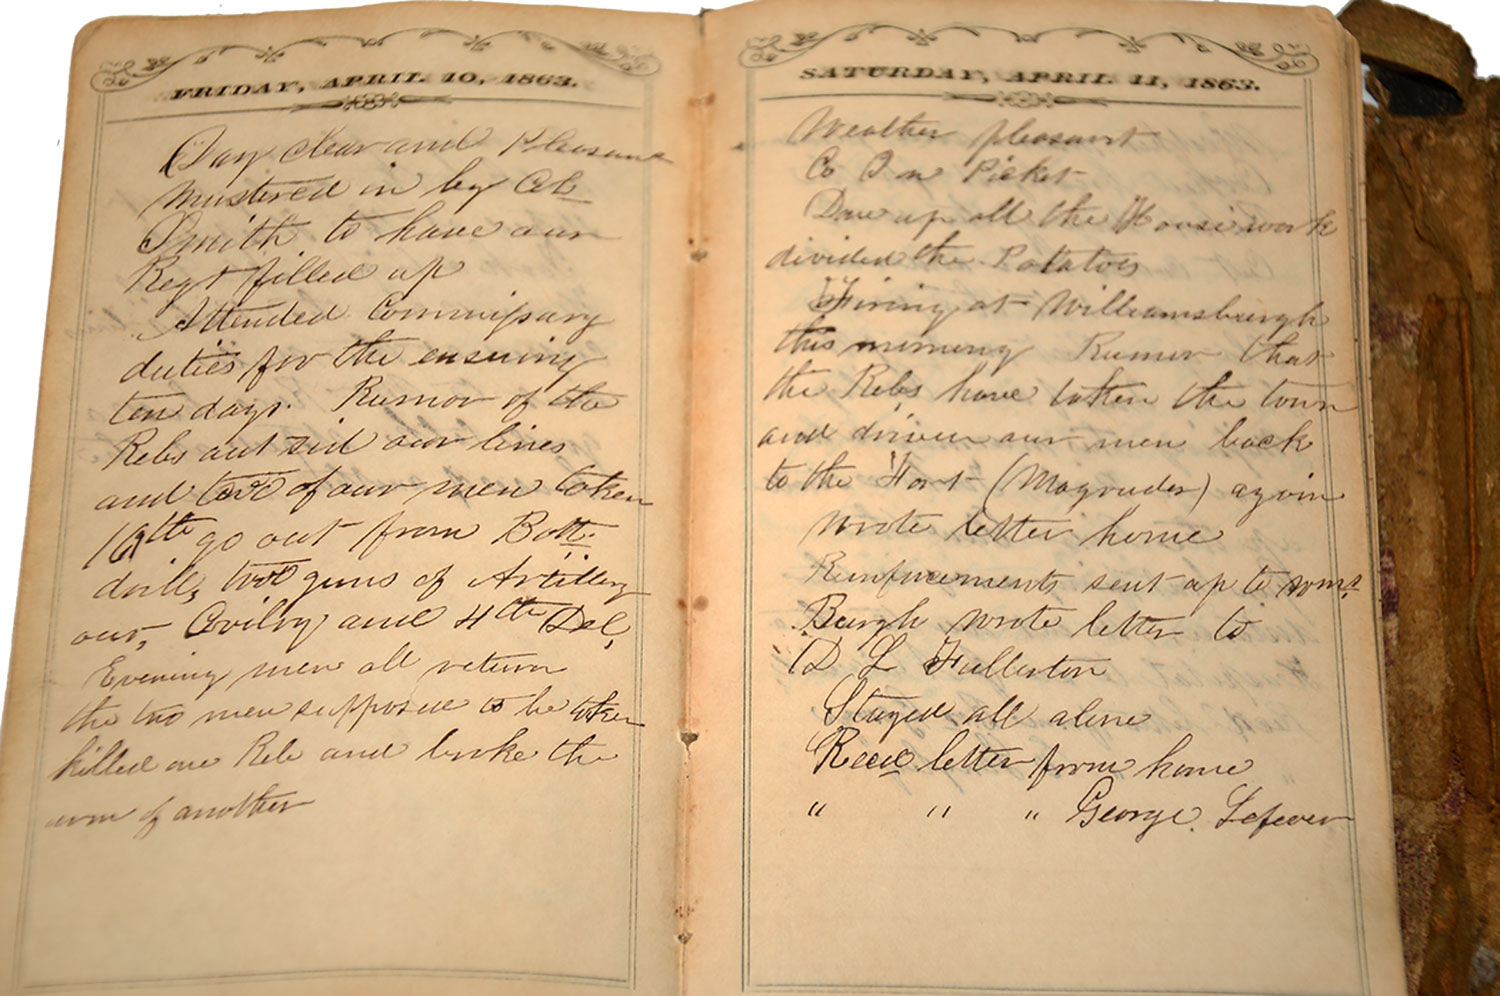 FRIDAY, APRIL 10, 1863.
Day clear and Pleasant
Mustered in by Col
Smith to have our
Regt filled up
Attended Commissary
duties for the ensuing
ten days. Rumor of the
Rebs out sid our lines
and two of our men taken
go out from Batt.
drill, two guns of Artillery
our, Cavilry and 4th Del,
Evening men all return
the two men suppose to be taken
killed one Reb and broke the
arm of another
SATURDAY, APRIL 11, 1863.
Weather pleasant
Co on Picket
Done up all the House work
divided the Potatoes
Firing at Williamsburgh
this morning Rumor that
the Rebs have taken the town
and driven our men back
to the Fort (Magruder) again
Wrote letter home
Reinforcements sent up to Wms
Burgh wrote letter to
D L Fullerton
Stayed all alone
Recd letter from home
" " " George Lefever